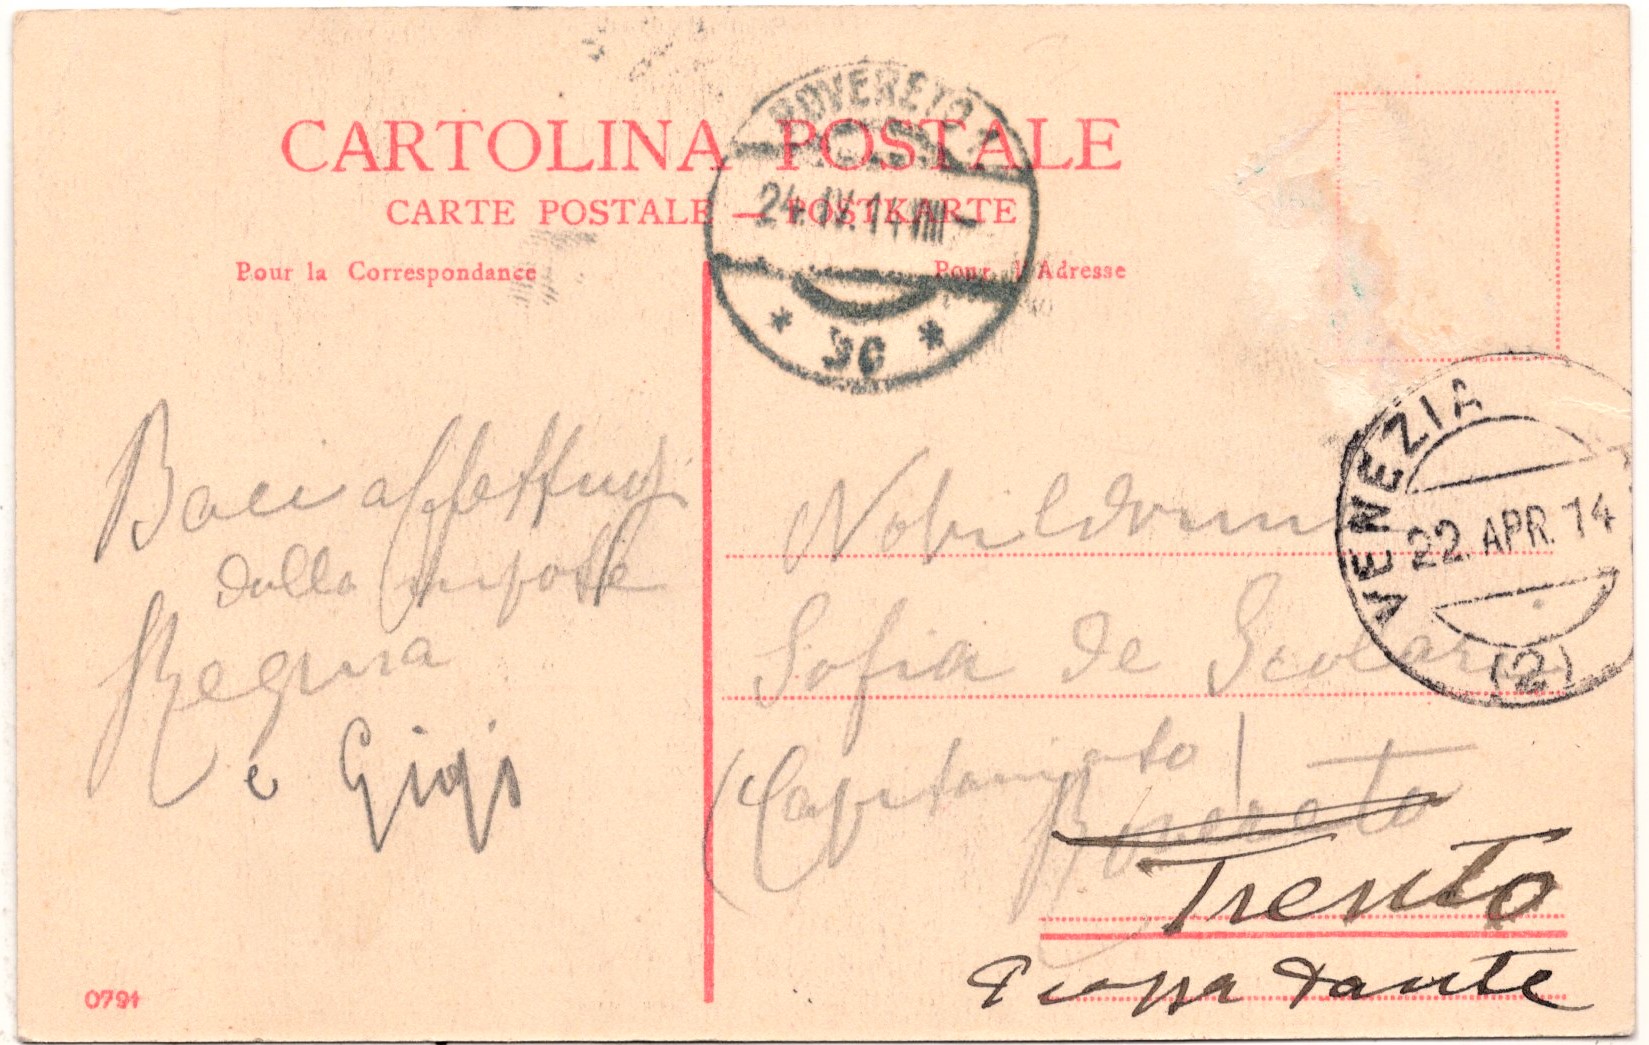 CARTOLINA POSTALE
CARTE POSTALE — POSTKARTE
Pour la Correspondance
Pour l'Adresse
ROVERETO 1
24.IV.14 VIII-
* 3c *
VENEZIA
22. APR. 14
(2)
Baci affettuosi
dalla nipote
Regina
e Gigi
Nobildonna
Sofia de Scolari
(Capitaniato)
Rovereto
Trento
Piazza Dante
0791